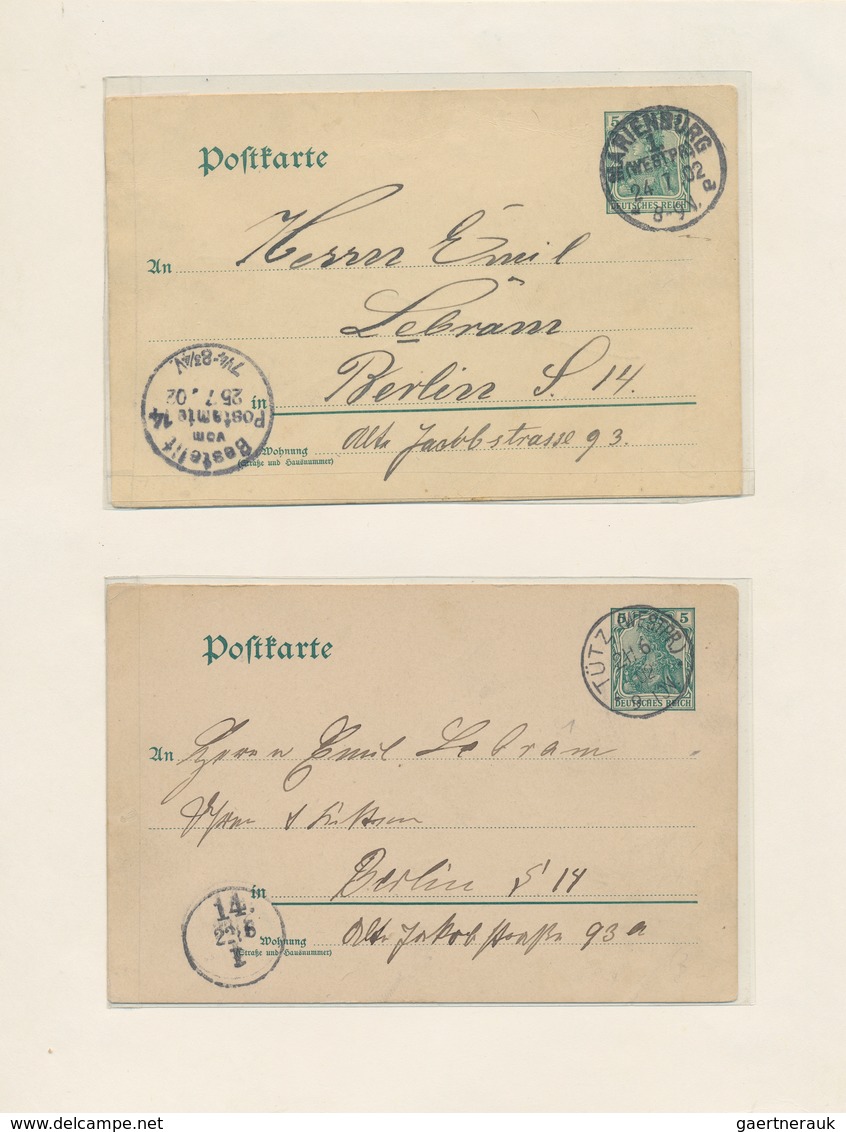 Postkarte
5
MARIENBURG
1.
(WESTPR)
24 7 02
8-9 N.
d
DEUTSCHES REICH
An Herrn Emil
Lebram
in Berlin S. 14.
Wohnung Alte Jacobstrasse 93.
(Straße und Hausnummer)
Bestellt
vom
Postamte 14
25 7. 02
7¼-8¾V.
Postkarte
5 5
TÜTZ (WESTPR)
21 6
02
DEUTSCHES REICH
An Herrn Emil Lebram
in Berlin S 14
Wohnung Alte Jakobstraße 93 a
(Straße und Hausnummer)
14.
22 6
1
delcampe.net
gaertnerauk